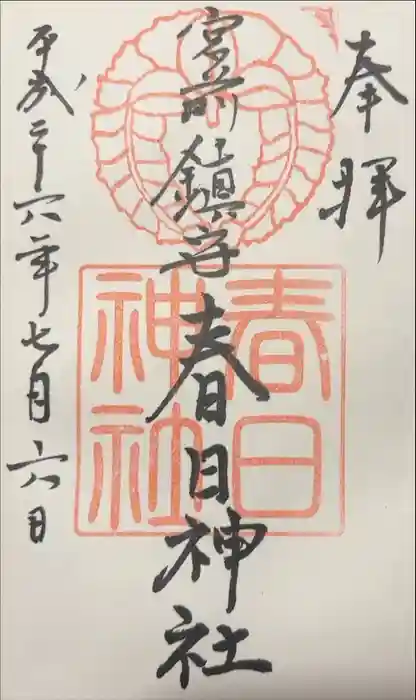 奉拝
宮前鎮守春日神社
平成二十六年七月六日
春日
神社